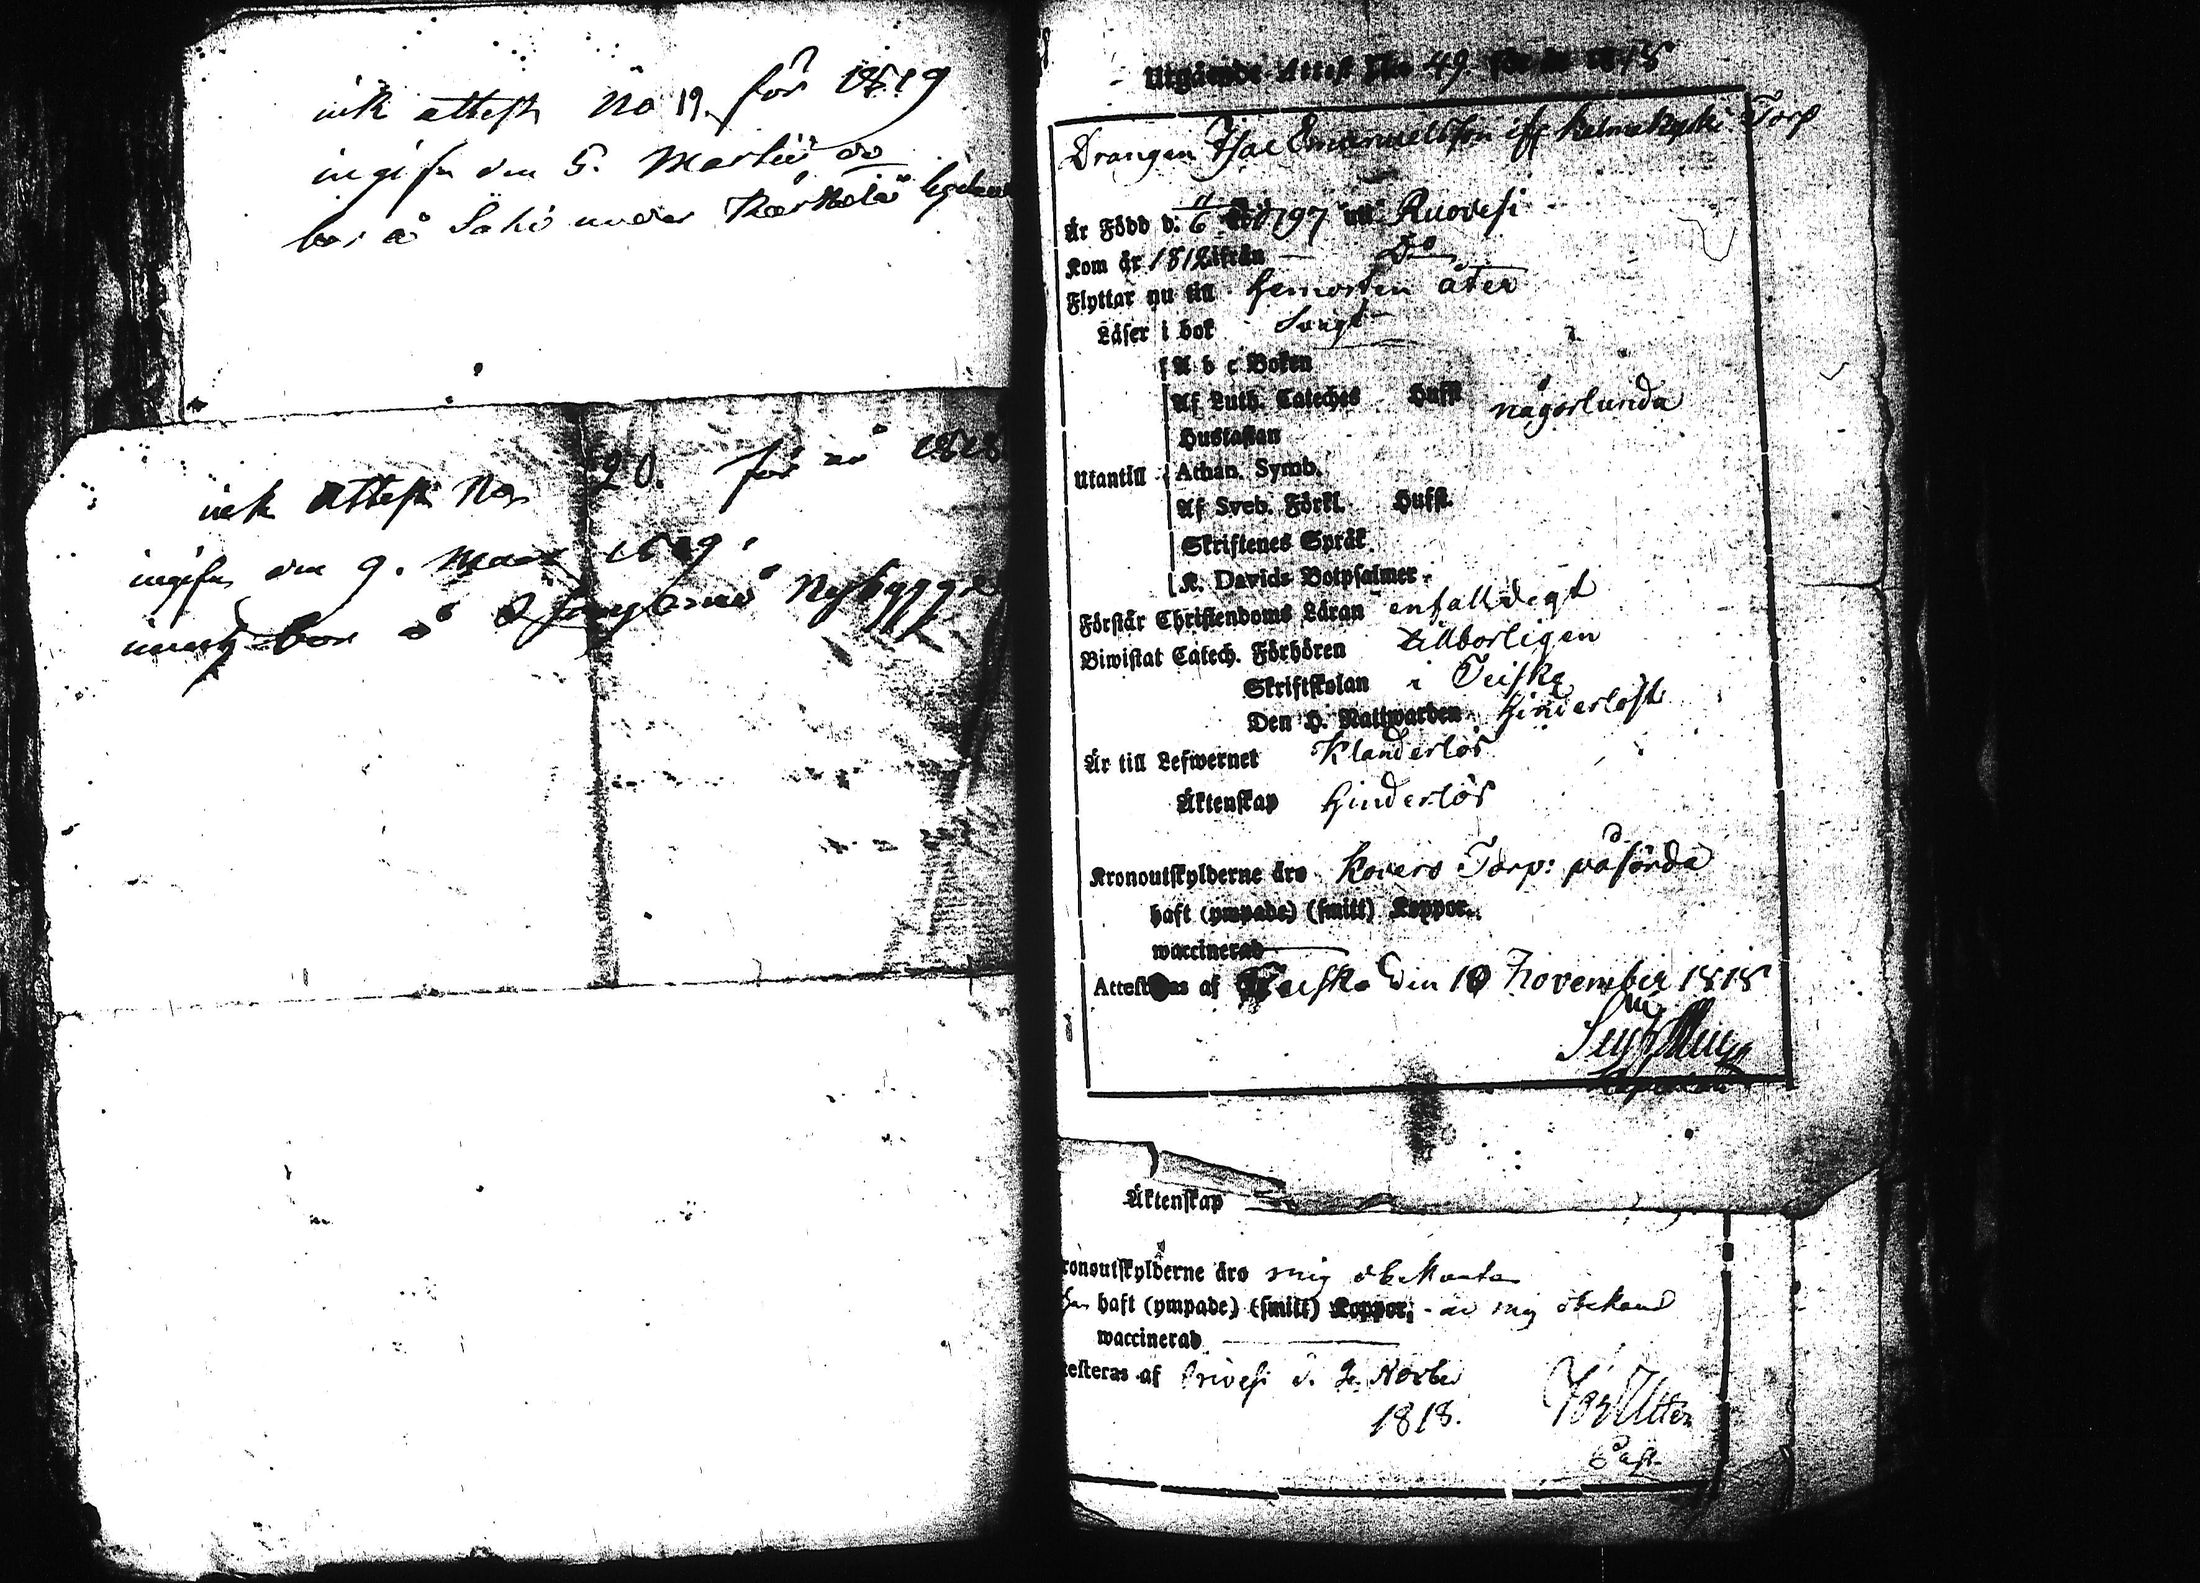 ink attest No 19. för 1819
ingifn den 5. Martii do
bor å Sahi under
ink attest No 20. för år 1818
ingifn den 9. Mars 1819.
bor å
Utgående Attest No 49. för år 1818
Drängen Isac Emanuelsson iff Torp
Är Född d. 11/6 1797 uti Ruovesi
Kom år 1812 ifrån Do
Flyttar nu till hemorten åter
Läser i bok Svagt
A b c Boken
Af Luth. Cateches Hufst någorlunda
Hustaflan
Utantill Athan. Symb.
Af Sveb. Förkl. Hufst.
Skriftenes Språk
K. Davids Botpsalmer
Förstår Christendoms Läran enfalldigt
Biwistat Catech. Förhören tillbörligen
Skriftskolan i Teisko
Den H. Nattwarden hinderlöst
Är till Lefwernet Klanderlös
Äktenskap hinderlös
Kronoutskylderne äro Kovero Torp: påförda
haft (ympade) (smitt) Koppor.
waccinerad
Attesteras af Teisko den 10 November 1818
Äktenskap
ronoutskylderne äro mig obekanta
haft (ympade) (smitt) Koppor, är mig obekand
waccinerad
testeras af Orivesi d. 2 Novbr
1818.
Past.